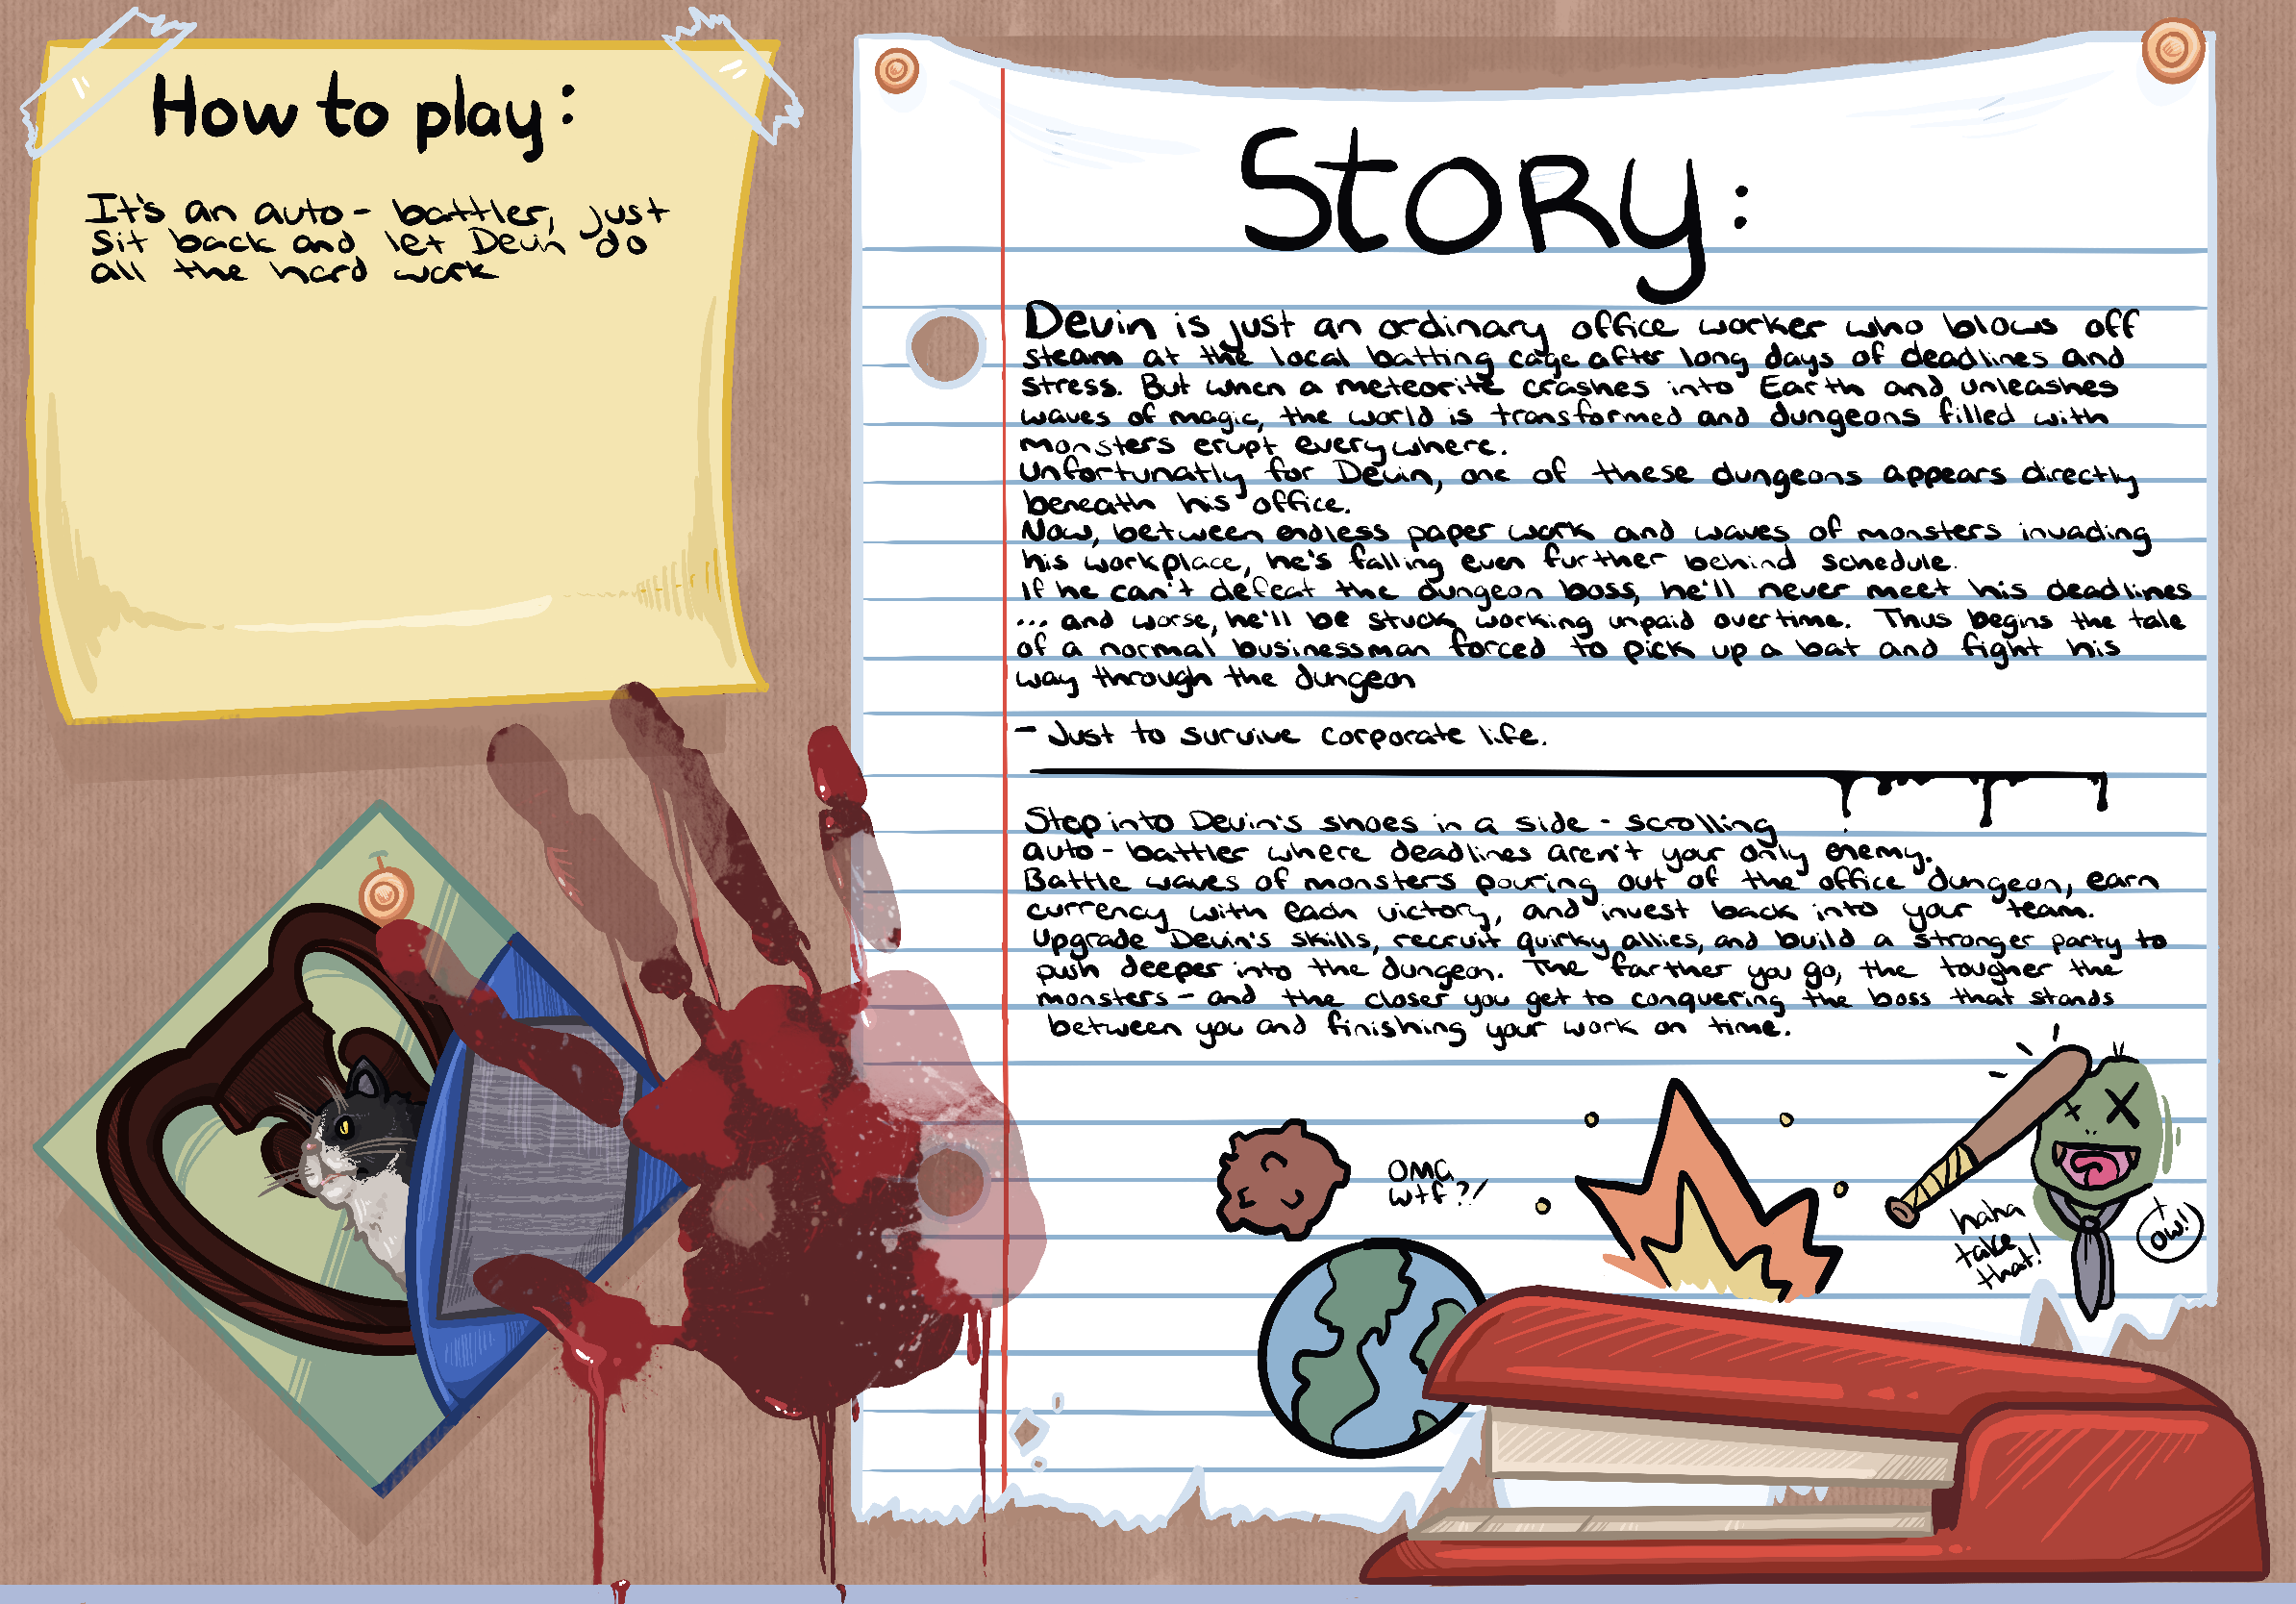 How to play:
It's an auto- battler, just
sit back and let Devin do
all the hard work
Story:
Devin is just an ordinary office worker who blows off
steam at the local batting cage after long days of deadlines and
stress. But when a meteorite crashes into Earth and unleashes
waves of magic, the world is transformed and dungeons filled with
monsters erupt everywhere.
Unfortunatly for Devin, one of these dungeons appears directly
beneath his office.
Now, between endless paper work and waves of monsters invading
his workplace, he's falling even further behind schedule.
If he can't defeat the dungeon boss, he'll never meet his deadlines
... and worse, he'll be stuck working unpaid overtime. Thus begins the tale
of a normal businessman forced to pick up a bat and fight his
way through the dungeon
- Just to survive corporate life.
Step into Devin's shoes in a side - scrolling
auto- battler where deadlines aren't your only enemy.
Battle waves of monsters pouring out of the office dungeon, earn
currency with each victory, and invest back into your team.
Upgrade Devin's skills, recruit quirky allies, and build a stronger party to
push deeper into the dungeon. The farther you go, the tougher the
monsters - and the closer you get to conquering the boss that stands
between you and finishing your work on time.
OMG
wtf?!
haha
take
that!
ow!!